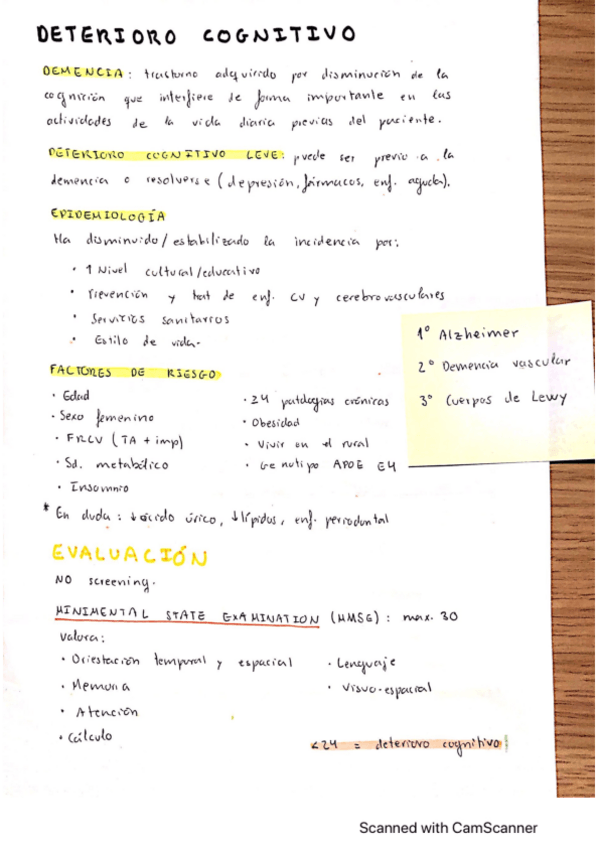 DETERIORO COGNITIVO
DEMENCIA: trastorno adquirido por disminución de la
cognición que interfiere de forma importante en las
actividades de la vida diaria previas del paciente.
DETERIORO COGNITIVO LEVE: puede ser previo a la
demencia o resolverse (depresión, fármacos, enf. aguda).
EPIDEMIOLOGÍA
Ha disminuido/estabilizado la incidencia por:
· ↑ Nivel cultural/educativo
· Prevención y tast de enf. CV y cerebrovasculares
· Servicios sanitarios
· Estilo de vida.
1º Alzheimer
2º Demencia vascular
3º Cuerpos de Lewy
FACTORES DE RIESGO
· Edad
· Sexo femenino
· FRCV (TA + imp)
· Sd. metabólico
· Insomnio
· ≥4 patologías crónicas
· Obesidad
· Vivir en el rural
· Genotipo APOE E4
* En duda: ↓ácido úrico, ↓lípidos, enf. periodontal
EVALUACIÓN
NO screening.
MINIMENTAL STATE EXAMINATION (MMSE): max. 30
Valora:
· Orientación temporal y espacial
· Memoria
· Atención
· Cálculo
· Lenguaje
· Visuo-espacial
<24 = deterioro cognitivo
Scanned with CamScanner